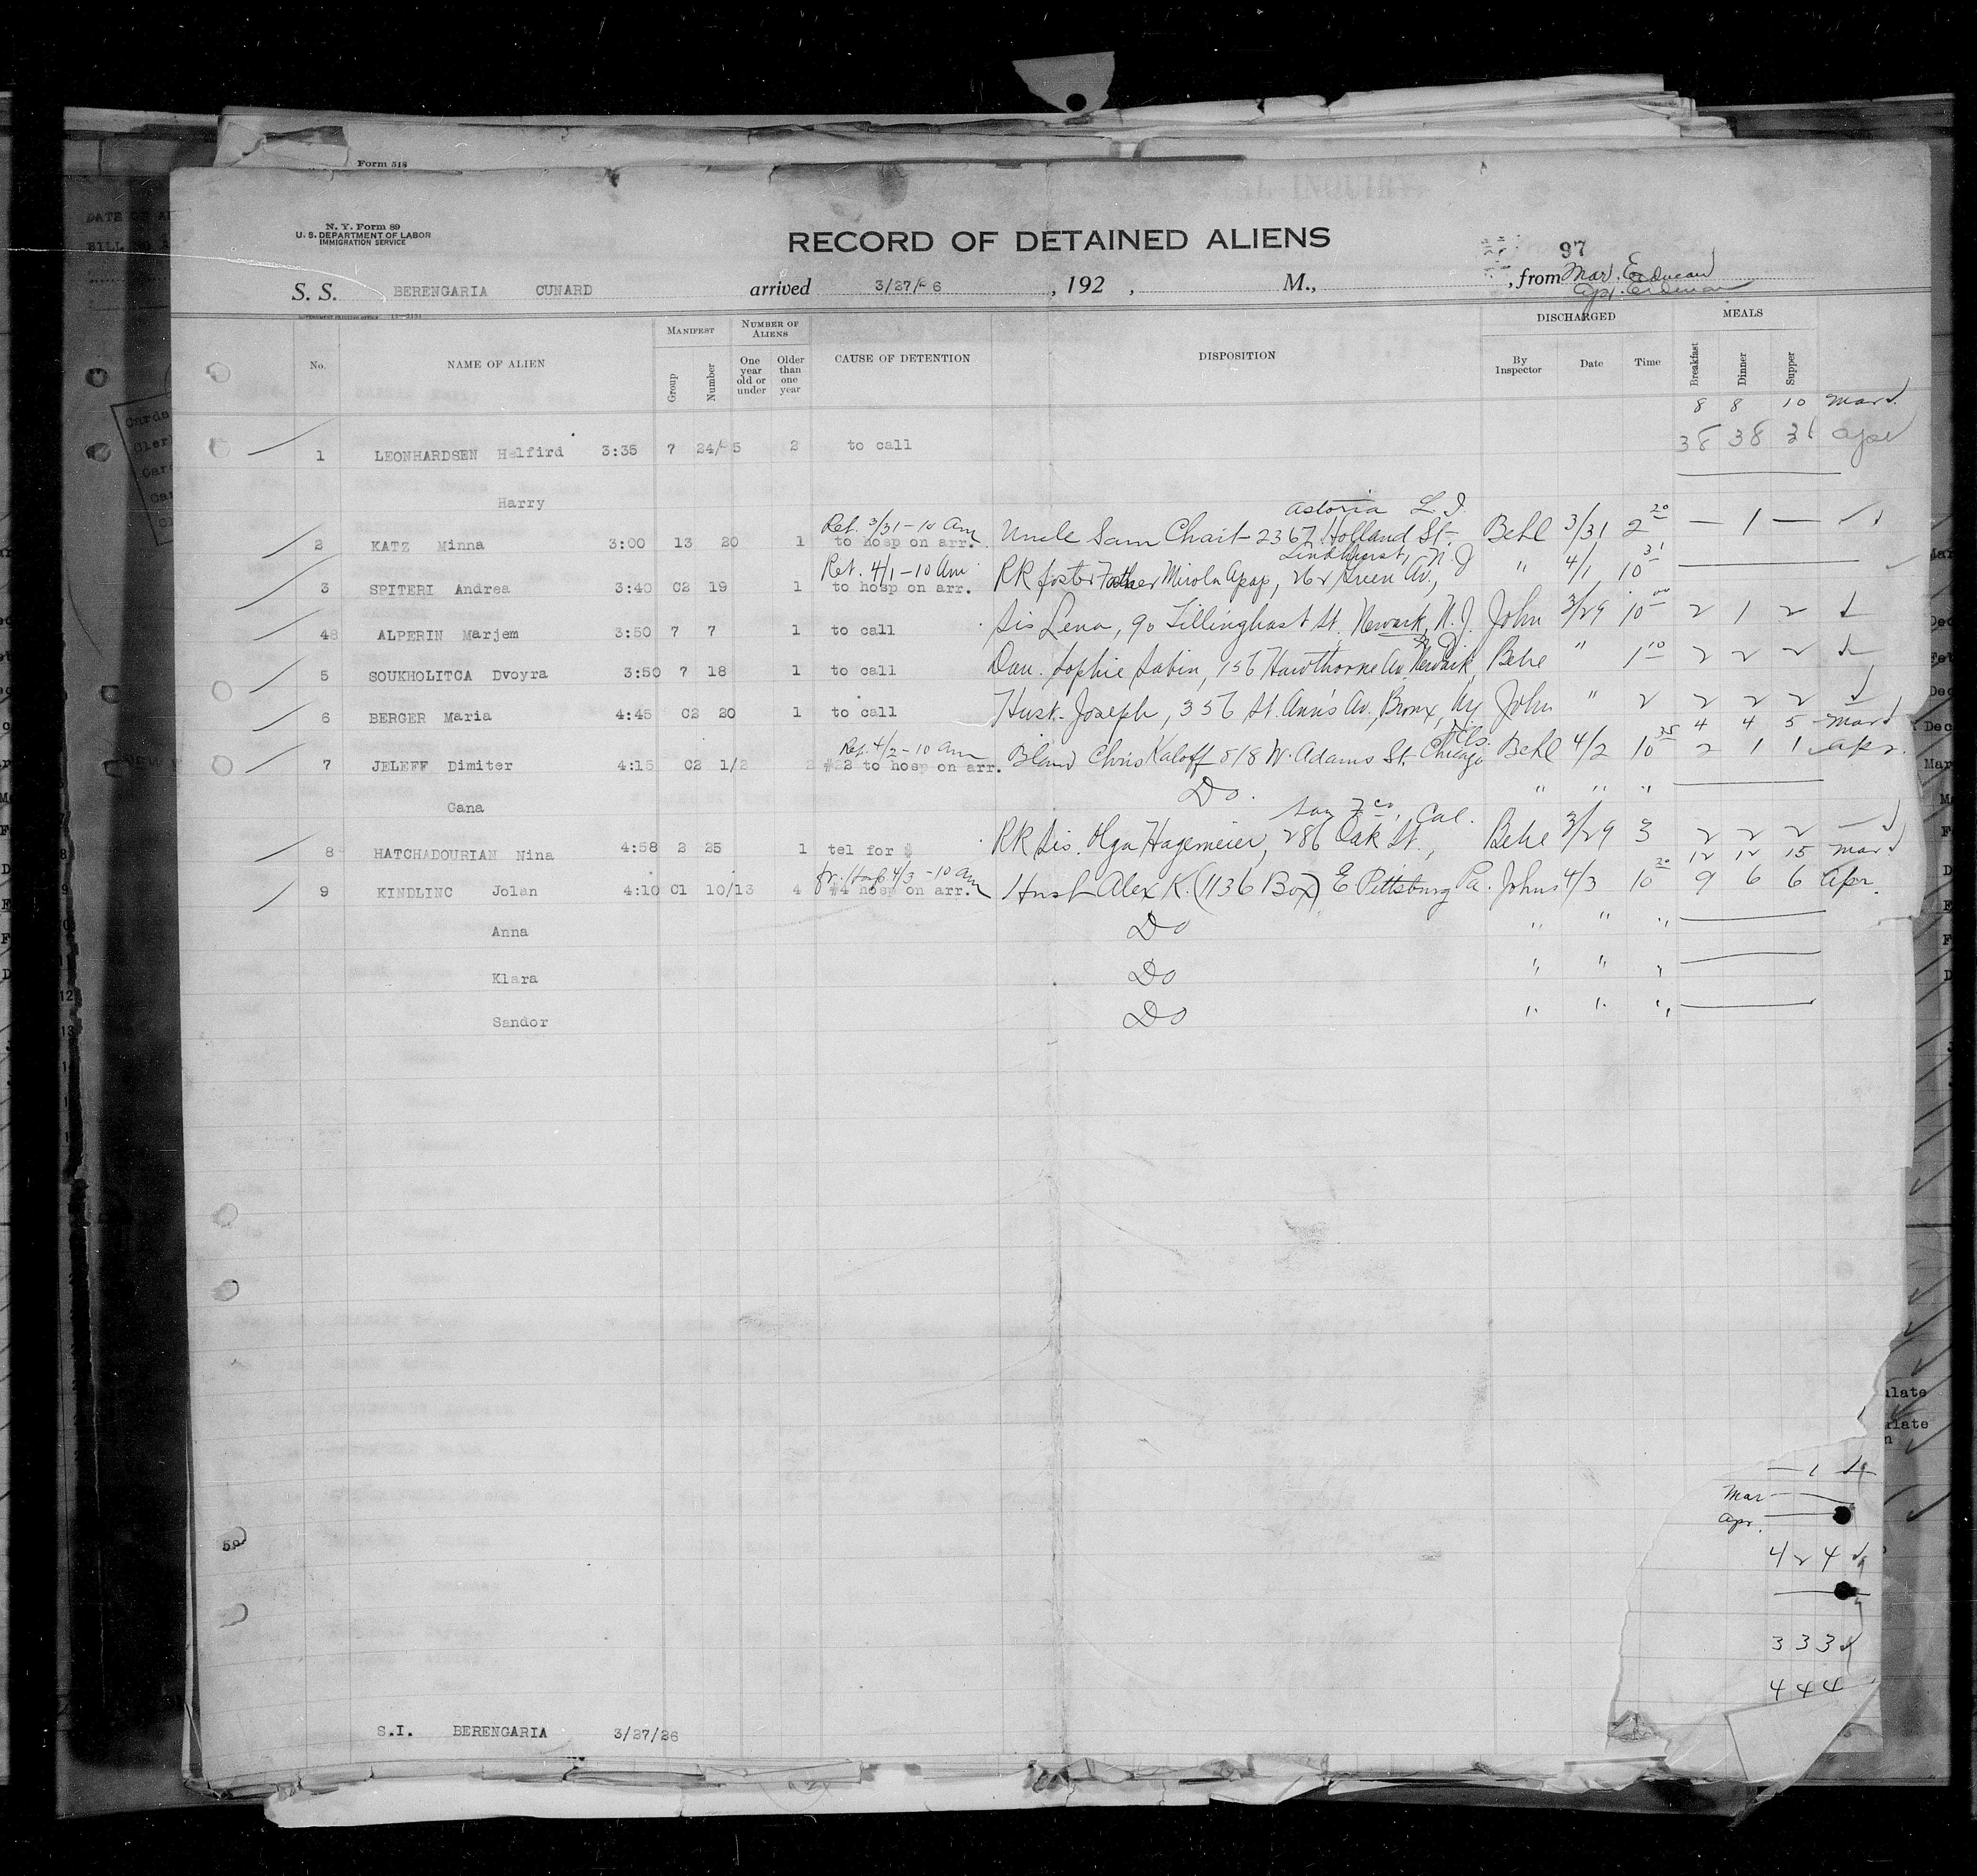 Form 518
N. Y. Form 89
U. S. DEPARTMENT OF LABOR
IMMIGRATION SERVICE
RECORD OF DETAINED ALIENS
97
S. S. BERENGARIA CUNARD arrived 3/27/26, 192 , M., , from Mar.
Apr.
MANIFEST NUMBER OF ALIENS DISCHARGED MEALS
No. NAME OF ALIEN Group Number One year old or under Older than one year CAUSE OF DETENTION DISPOSITION By Inspector Date Time Breakfast Dinner Supper
8 8 10 Mar
1 LEONHARDSEN Helfird 3:35 7 24/25 2 to call 38 38 36 Apr
Harry
Ret. 3/31-10 Am Astoria L.I.
2 KATZ Minna 3:00 13 20 1 to hosp on arr. Uncle Sam Chait-2367 Holland St. Behl 3/31 2 20 — 1 —
Ret. 4/1-10 Am Lindhurst, N.J
3 SPITERI Andrea 3:40 C2 19 1 to hosp on arr. RR foster Father Apap, 262 Green Av., " 4/1 10 31
48 ALPERIN Marjem 3:50 7 7 1 to call Sis Lena, 90 Tillinghast St. Newark, N.J. John 3/29 10 00 2 1 2
5 SOUKHOLITCA Dvoyra 3:50 7 18 1 to call Dau. Sophie Sabin, 156 Hawthorne Av. Newark, N.J. Behl " 1 10 2 2 2
6 BERGER Maria 4:45 C2 20 1 to call Husb. Joseph, 356 St. Ann's Av., Bronx, Ny John " 2 2 2 2
Ret. 4/2-10 Am Ills. 4 4 5 Mar
7 JELEFF Dimiter 4:15 C2 1/2 2 #22 to hosp on arr. Chris Kaloff 818 W. Adams St. Chicago Behl 4/2 10 35 2 1 1 Apr.
Gana Do. " " "
San Fco, Cal.
8 HATCHADOURIAN Nina 4:58 2 25 1 tel for $ RR Sis. Olga Hagemeier, 286 Oak St., Behl 3/29 3 2 2 2
fr. Hosp 4/3-10 am 12 12 15 Mar
9 KINDLINC Jolan 4:10 C1 10/13 4 #4 hosp on arr. Husb Alex K. (1136 Box) E Pittsburg Pa. Johns 4/3 10 20 9 6 6 Apr.
Anna Do " " "
Klara Do " " "
Sandor Do " " "
— 1
Mar
Apr.
4 2 4
3 3 3
4 4 4
S.I. BERENGARIA 3/27/26